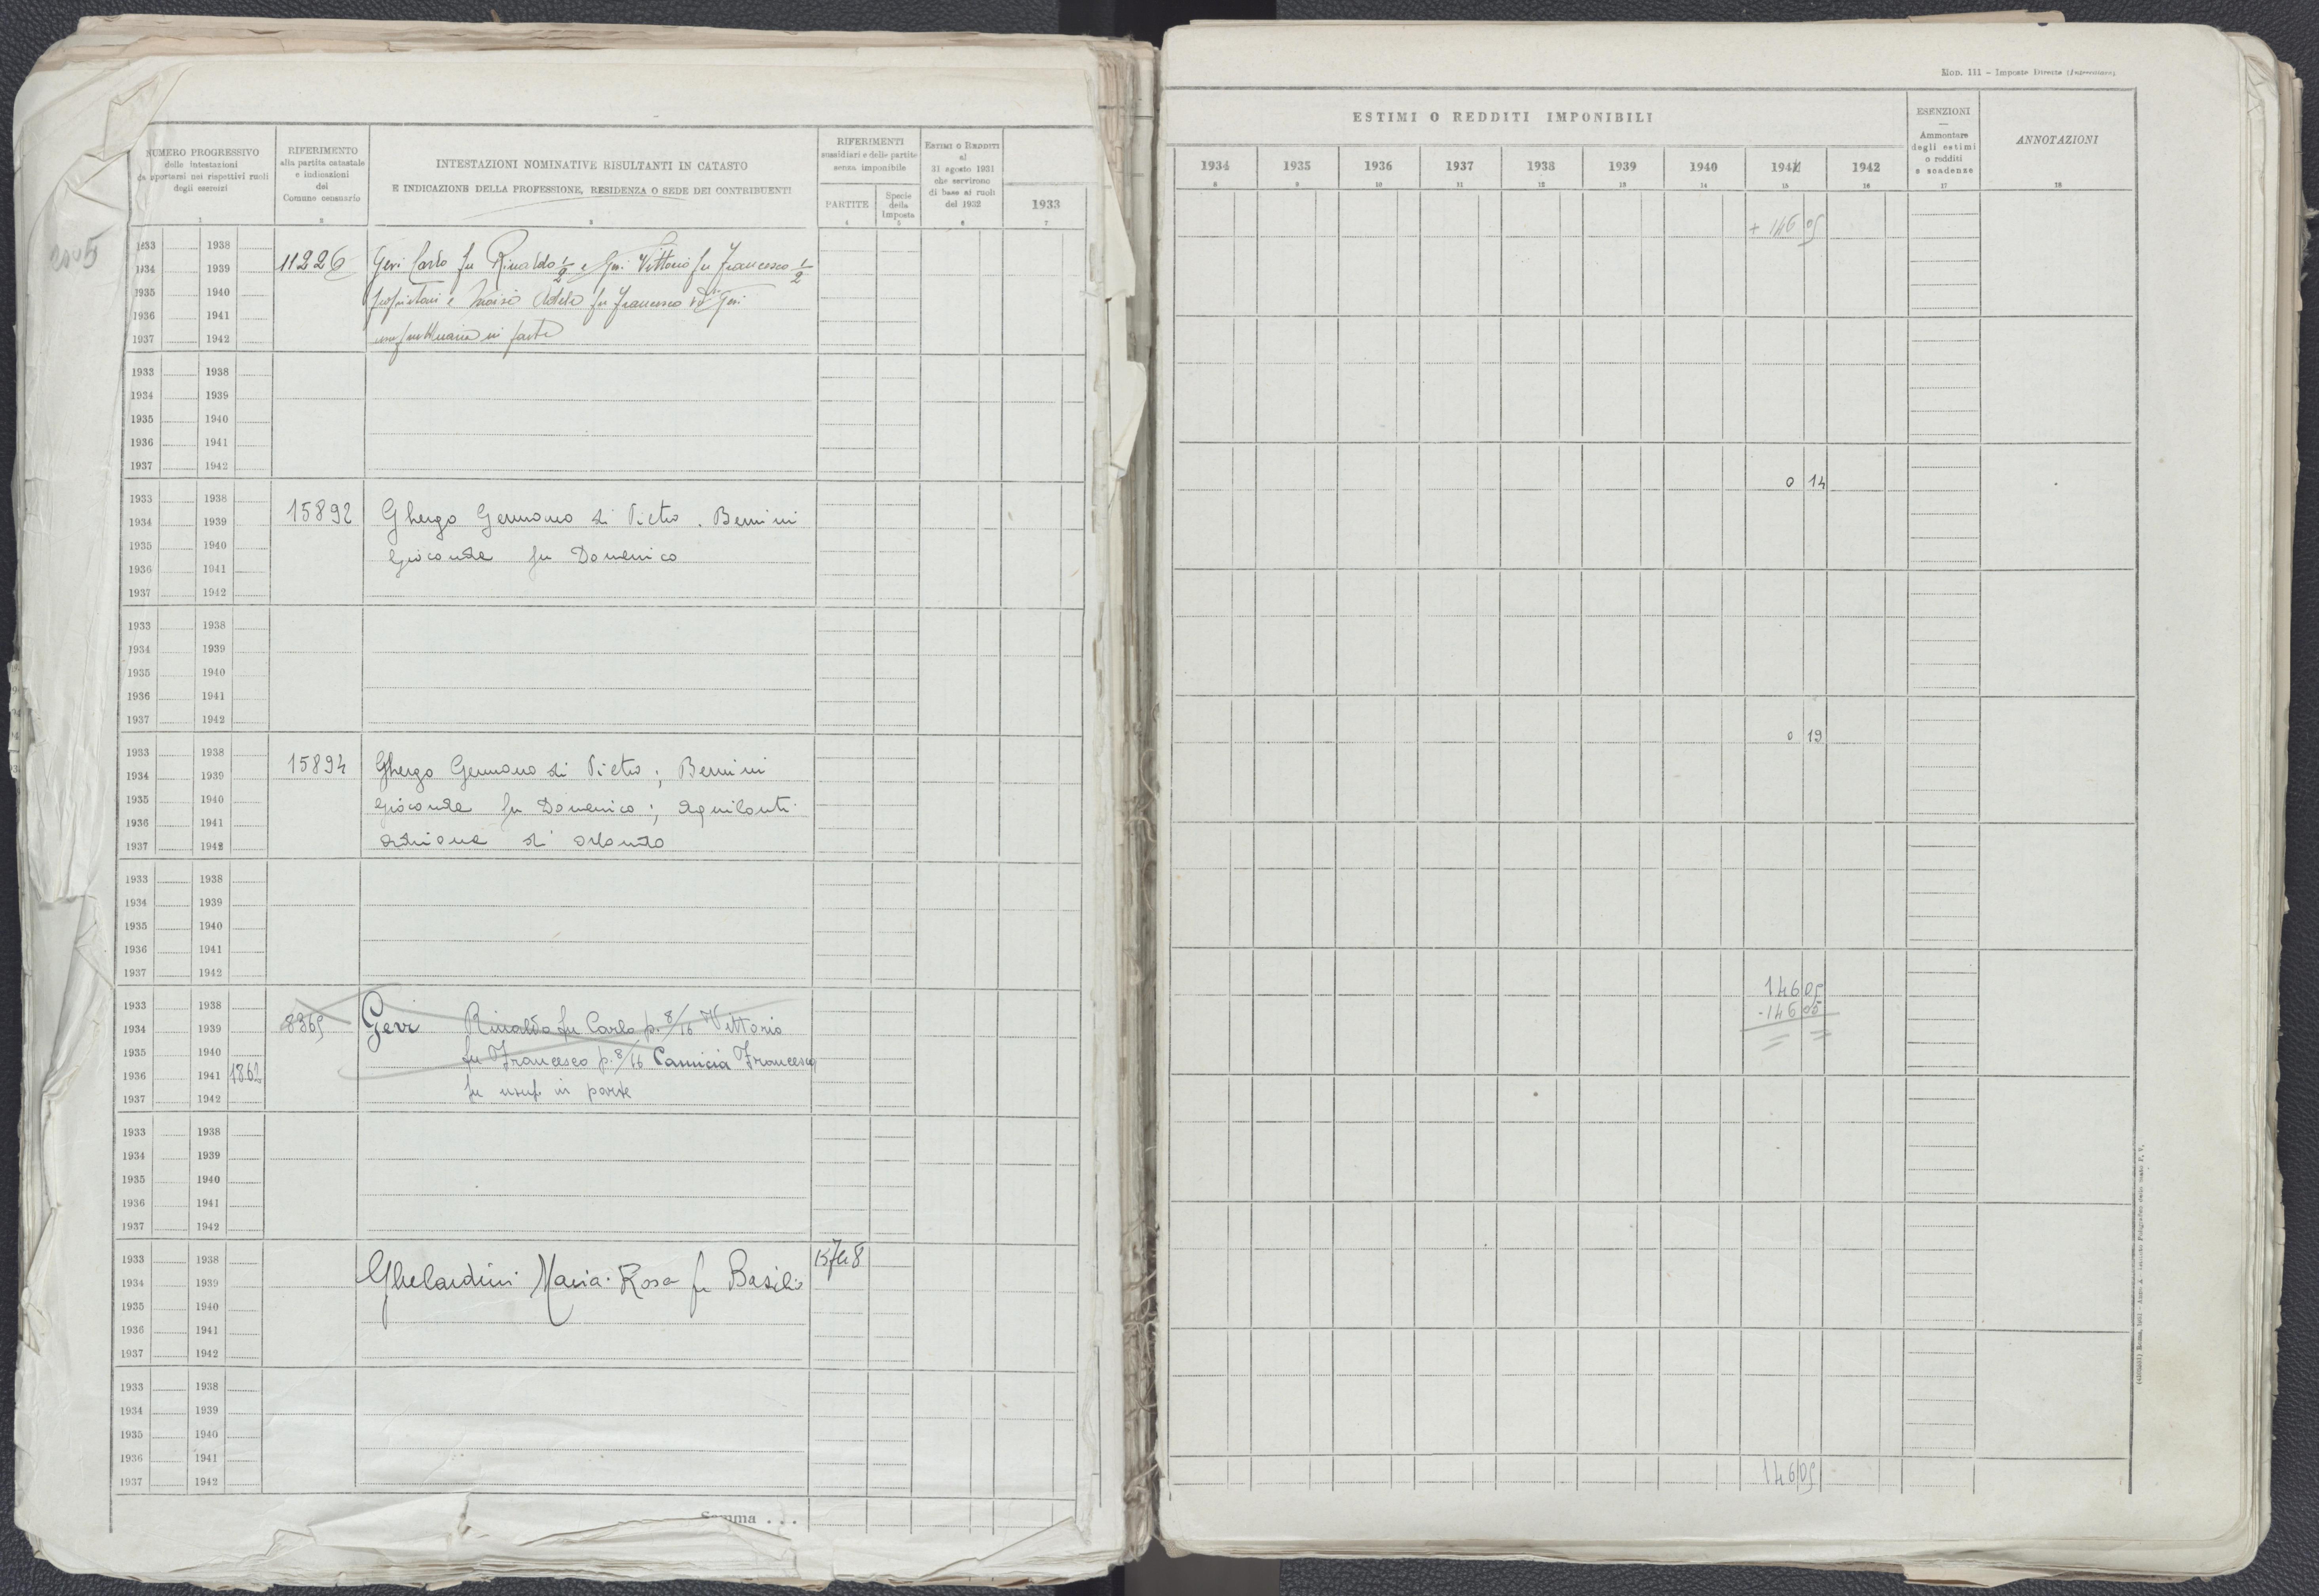 NUMERO PROGRESSIVO
delle intestazioni
da riportarsi nei rispettivi ruoli
degli esercizi
1
RIFERIMENTO
alla partita catastale
e indicazioni
del
Comune censuario
2
INTESTAZIONI NOMINATIVE RISULTANTI IN CATASTO
E INDICAZIONE DELLA PROFESSIONE, RESIDENZA O SEDE DEI CONTRIBUENTI
3
RIFERIMENTI
sussidiari e delle partite
senza imponibile
PARTITE
4
Specie
della
Imposta
5
ESTIMI O REDDITI
al
31 agosto 1931
che servirono
di base ai ruoli
del 1932
6
1933
7
2005
1933 1938
1934 1939 11226 Gevi Carlo fu Rinaldo 1/2 e Gevi Vittorio fu Francesco 1/2
1935 1940 proprietari e Adele fu Francesco Gevi
1936 1941
1937 1942 usufruttuaria in parte
1933 1938
1934 1939
1935 1940
1936 1941
1937 1942
1933 1938
1934 1939 15892 Ghergo Germano di Pietro . Bernini
1935 1940
1936 1941 Gioconda fu Domenico
1937 1942
1933 1938
1934 1939
1935 1940
1936 1941
1937 1942
1933 1938
1934 1939 15894 Ghergo Germano di Pietro ; Bernini
1935 1940 Gioconda fu Domenico ; Aquilanti
1936 1941
1937 1942 Adriana di Orlando
1933 1938
1934 1939
1935 1940
1936 1941
1937 1942
1933 1938
1934 1939 8369 Gevi Rinaldo fu Carlo p. 8/16 Vittorio
1935 1940 fu Francesco p. 8/16 Camicia Francesca
1936 1941 1862
1937 1942 fu usuf in parte
1933 1938
1934 1939
1935 1940
1936 1941
1937 1942
1933 1938 15748
1934 1939 Ghelardini Maria Rosa fu Basilio
1935 1940
1936 1941
1937 1942
1933 1938
1934 1939
1935 1940
1936 1941
1937 1942
Somma . . .
Mod. 111 – Imposte Dirette
ESTIMI O REDDITI IMPONIBILI
1934
8
1935
9
1936
10
1937
11
1938
12
1939
13
1940
14
1941
15
1942
16
ESENZIONI
—
Ammontare
degli estimi
o redditi
e scadenze
17
ANNOTAZIONI
18
+ 146 05
0 14
0 19
146 05
-146 05
146 05